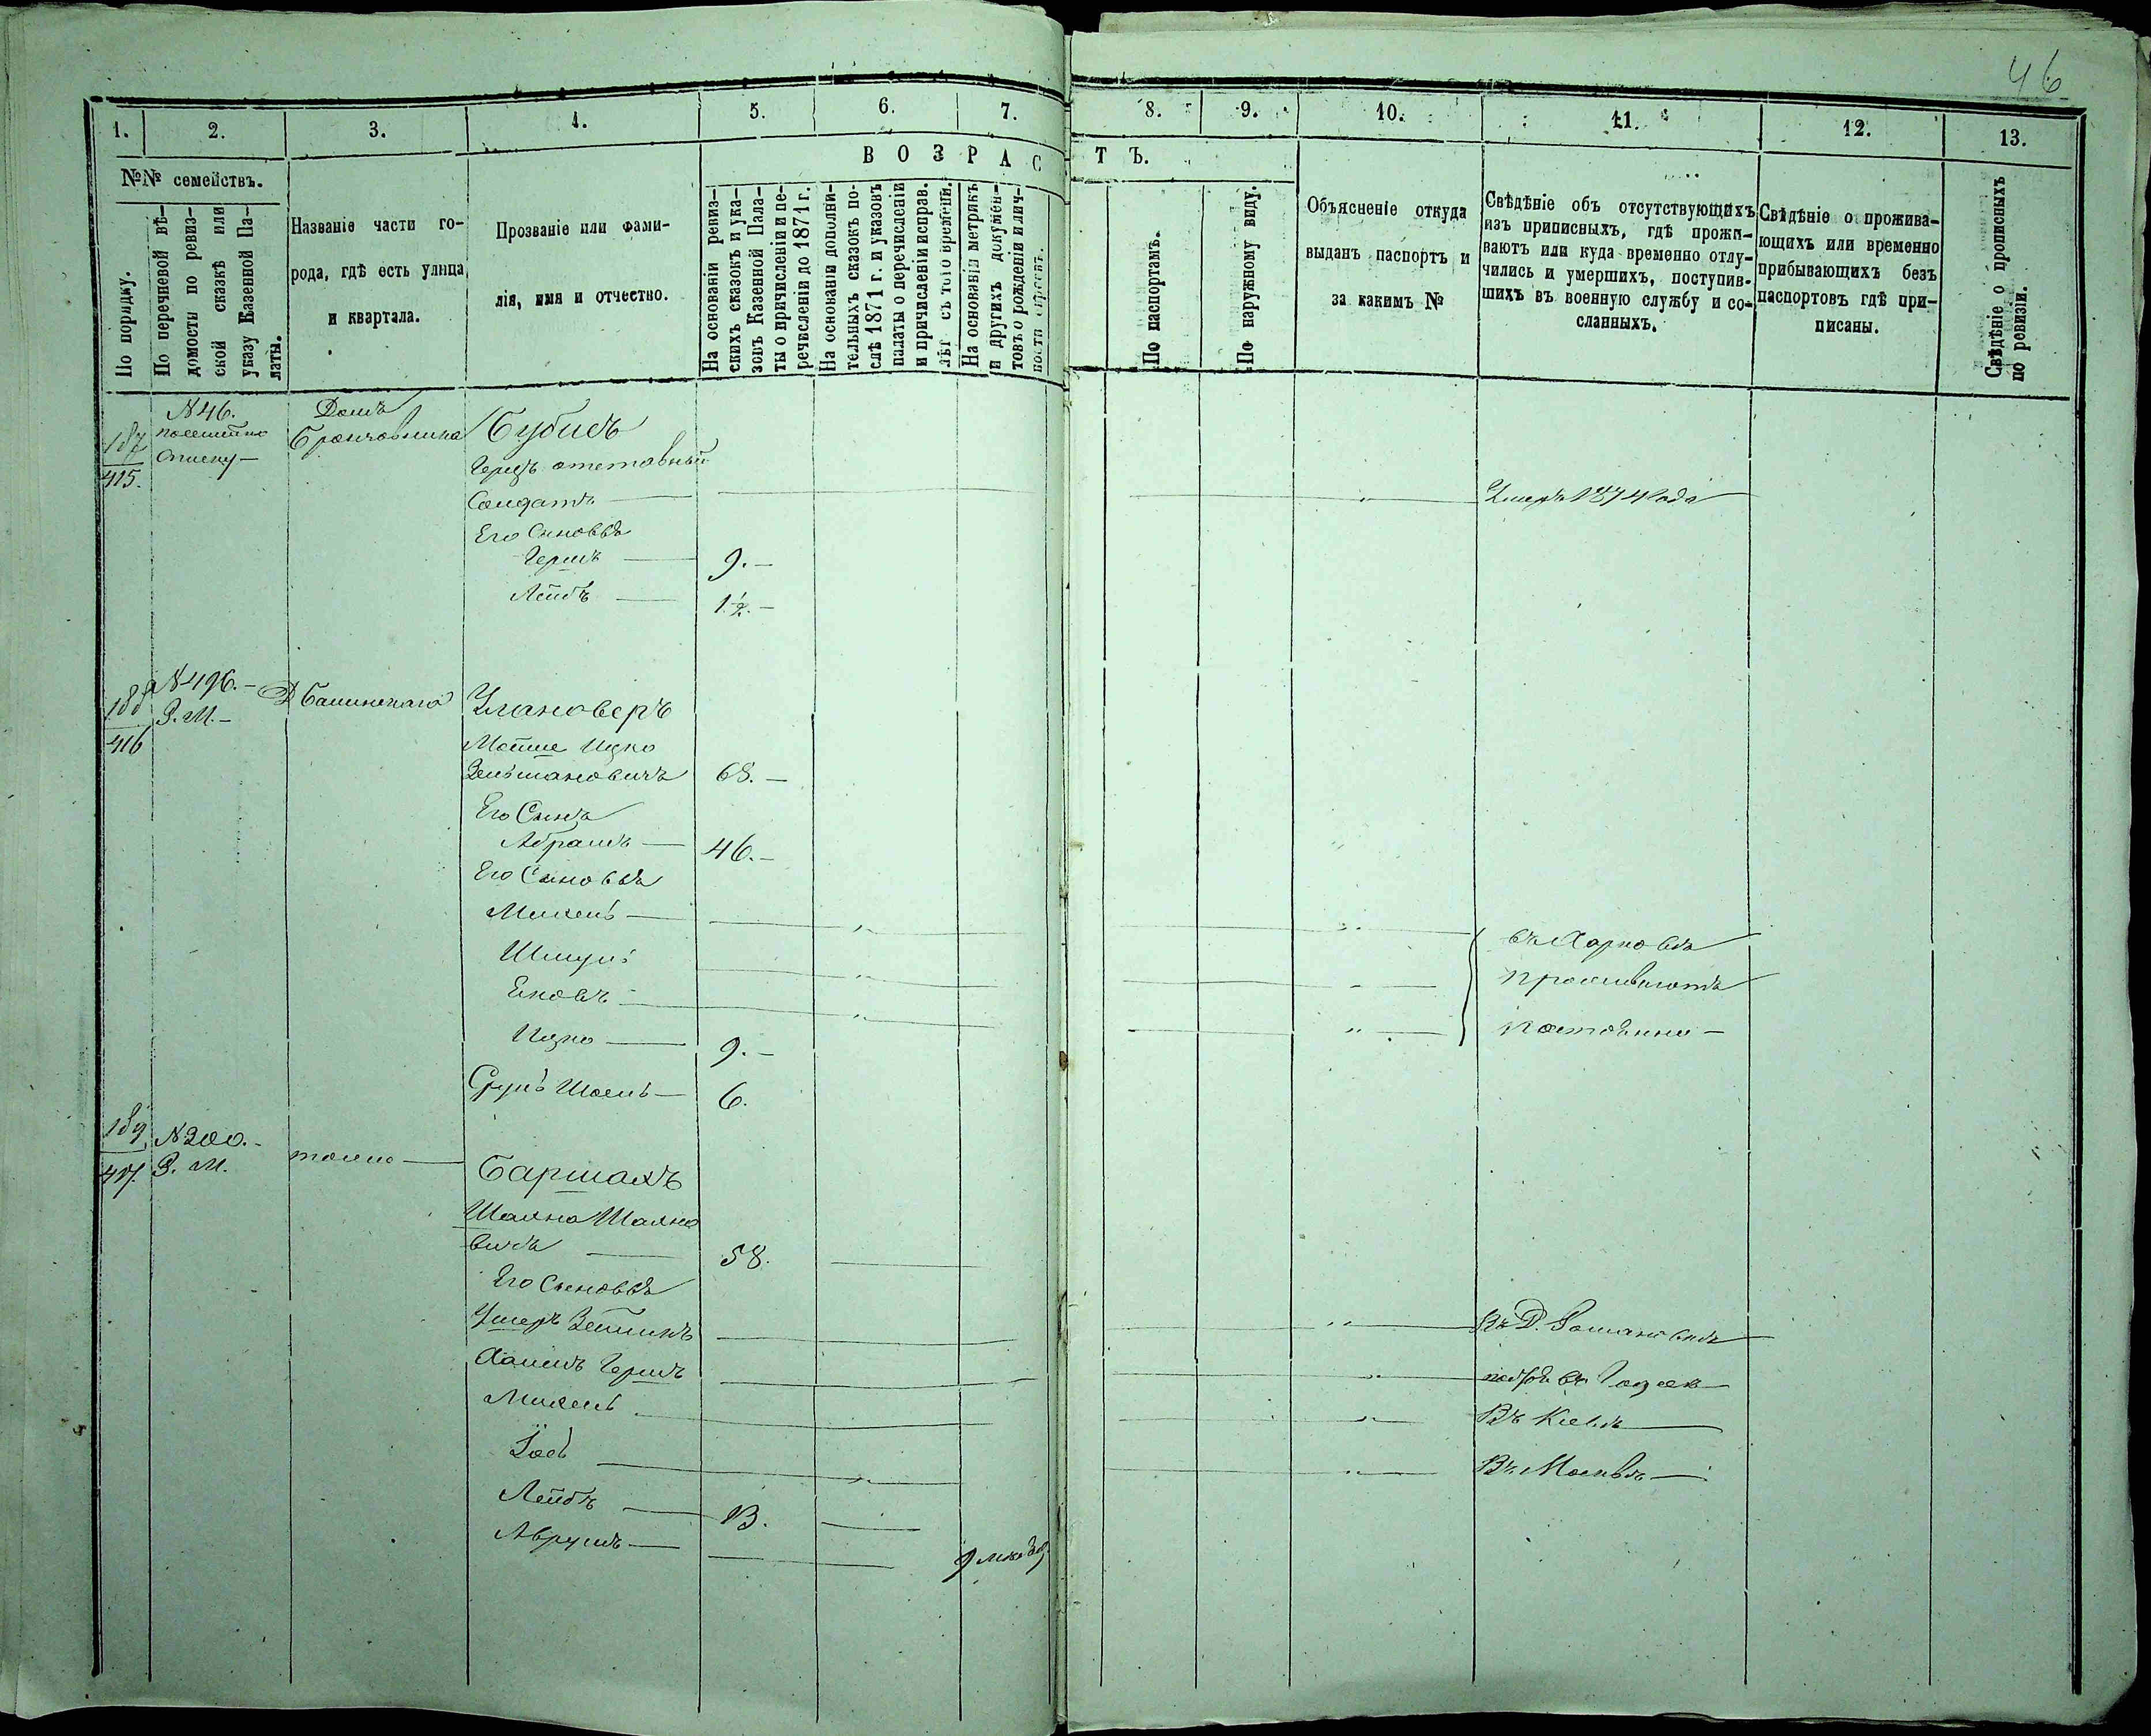 46
1. 2. 3. 4. 5. 6. 7. 8. 9. 10. 11. 12. 13.
№№ семействъ.
В О З Р А С Т Ъ.
По порядку.
По перечневой вѣ-
домости по ревиз-
ской сказкѣ или
указу Казенной Па-
латы.
Названіе части го-
рода, гдѣ есть улица
и квартала.
Прозваніе или фами-
лія, имя и отчество.
На основаніи ревиз-
скихъ сказокъ и ука-
зовъ Казенной Пала-
ты о причисленіи и пе-
речисленіи до 1871 г.
На основаніи дополни-
тельныхъ сказокъ по-
слѣ 1871 г. и указовъ
палаты о перечисленіи
и причисленіи исправ.
лѣт съ того времени.
На основаніи метрикъ
и другихъ докумен-
товъ о рожденіи и лич-
По паспортамъ.
По наружному виду.
Объясненіе откуда
выданъ паспортъ и
за какимъ №
Свѣдѣніе объ отсутствующихъ
изъ приписныхъ, гдѣ прожи-
ваютъ или куда временно отлу-
чились и умершихъ, поступив-
шихъ въ военную службу и со-
сланныхъ.
Свѣдѣніе о прожива-
ющихъ или временно
прибывающихъ безъ
паспортовъ гдѣ при-
писаны.
Свѣдѣніе о прописныхъ
по ревизіи.
187
415.
N 46.
списку
Домъ
Губисъ
Герцъ отставный
Солдатъ
Умеръ 1874 года
Его Сыновья
Гершъ 9.
Лейбъ 1½.
188
416
N 496.
З. М.
Улановеръ
Мойше Ицко
Зельмановичъ 68.
Его Сынъ
Абрамъ 46.
Его Сыновья
Михель
въ Харковѣ
Шмуль
проживаютъ
Ековъ
Ицко 9.
постоянно
Сруль Шоель 6.
189
417.
N 200.
З. М.
тоже
Баршахъ
Шахно Шахно
вичъ 58.
Его Сыновья
Ушеръ Зейликъ
Въ Д. Романовкѣ
Хаимъ Гершъ
Михель
Въ Кіевѣ
Іось
Въ Москвѣ
Лейбъ 13.
Аврумъ